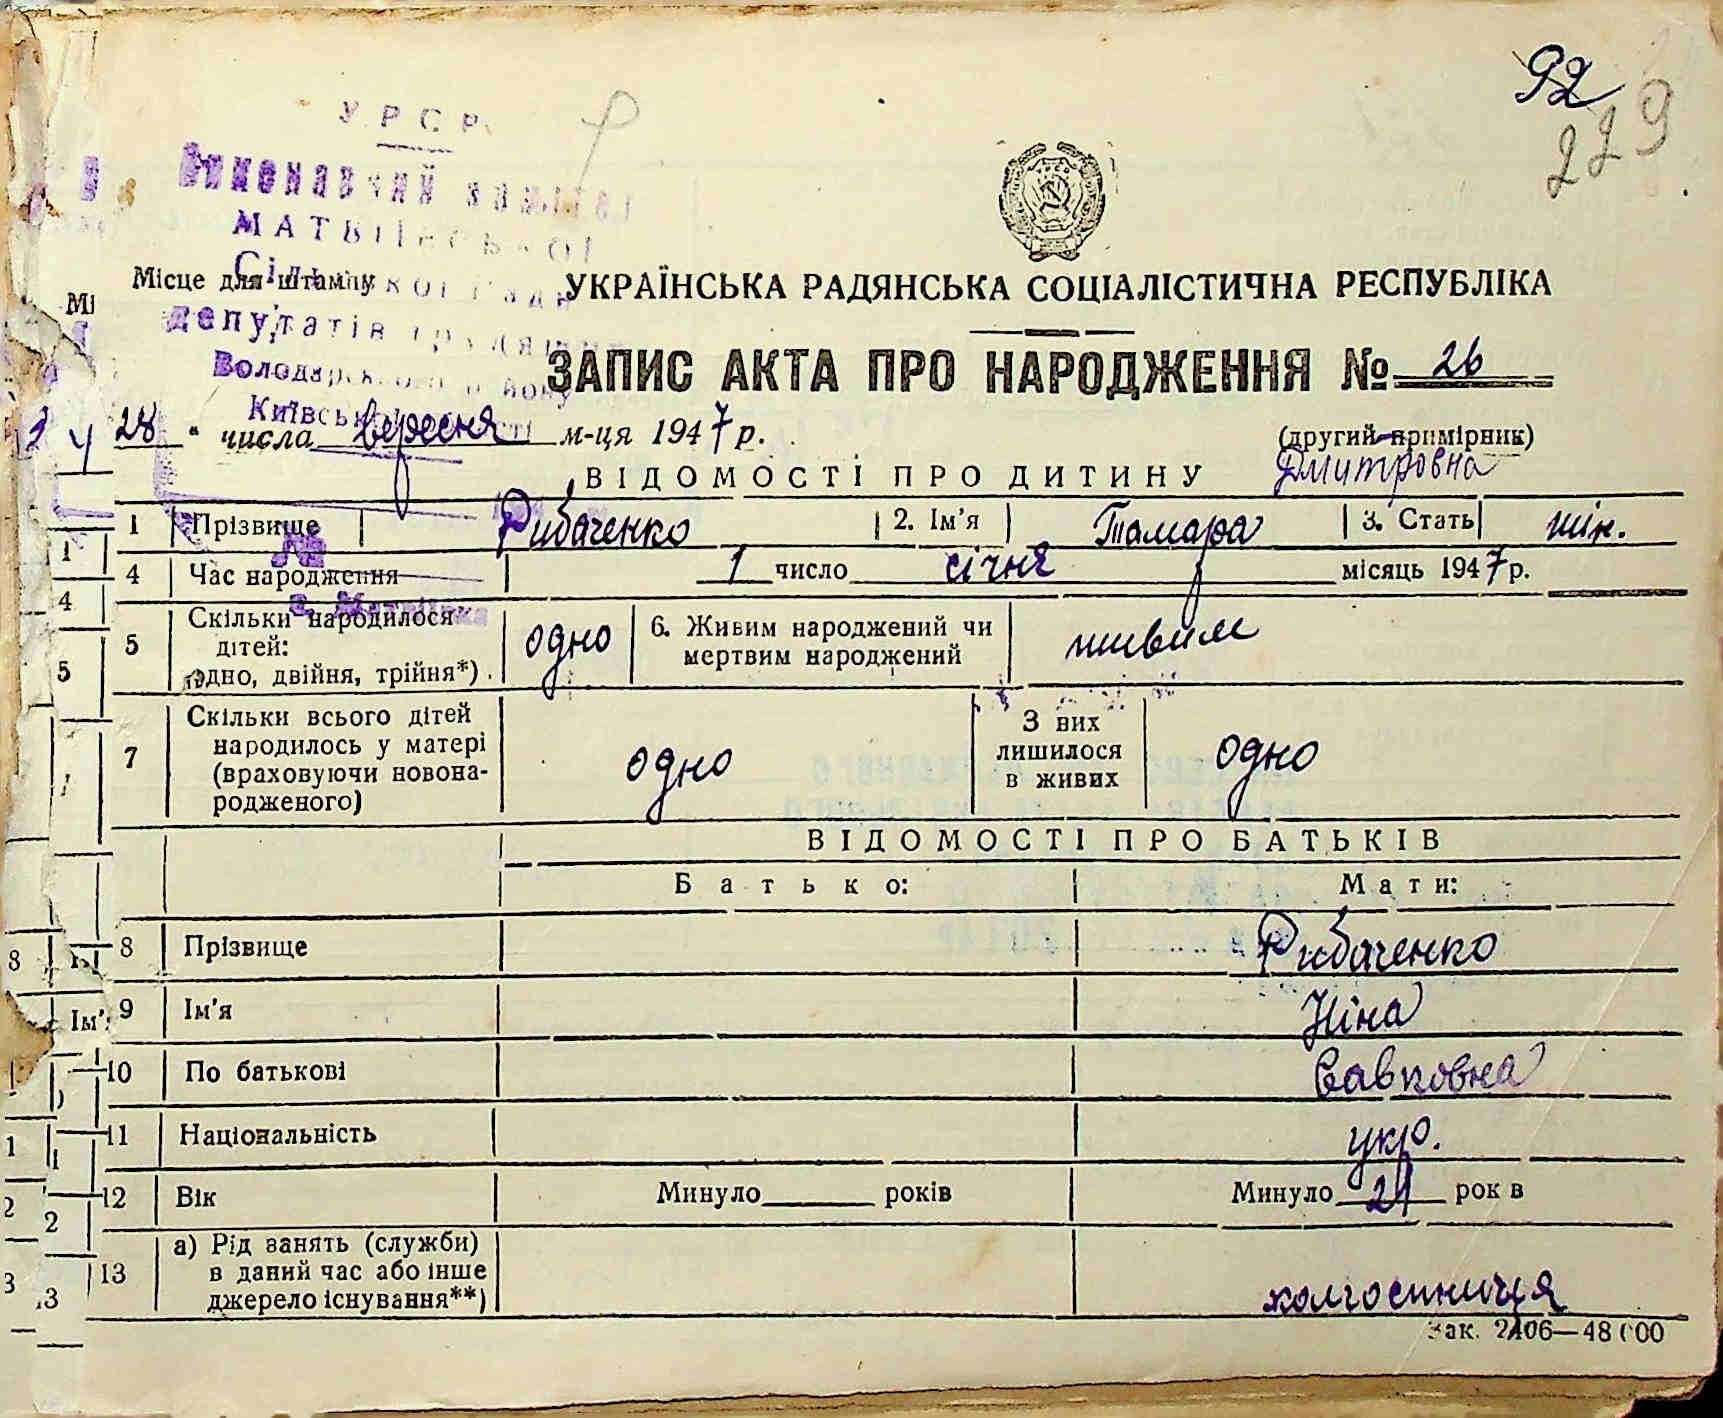 92
229
У.Р.С.Р.
Виконавчий комітет
МАТВІЇВСЬКОЇ
Сільської Ради
депутатів трудящих
Володарського району
Київської області
№
с. Матвіївка
Місце для штампу
УКРАЇНСЬКА РАДЯНСЬКА СОЦІАЛІСТИЧНА РЕСПУБЛІКА
ЗАПИС АКТА ПРО НАРОДЖЕННЯ № 26
28 " числа вересня м-ця 1947 р.
(другий примірник)
ВІДОМОСТІ ПРО ДИТИНУ
Дмитровна
1 Прізвище Рибаченко 2. Ім'я Тамара 3. Стать жін.
4 Час народження 1 число січня місяць 1947 р.
5 Скільки народилося дітей: одно, двійня, трійня*) одно 6. Живим народжений чи мертвим народжений живим
7 Скільки всього дітей народилось у матері (враховуючи новонародженого) одно З них лишилося в живих одно
ВІДОМОСТІ ПРО БАТЬКІВ
Батько: Мати:
8 Прізвище Рибаченко
9 Ім'я Ніна
10 По батькові Савковна
11 Національність укр.
12 Вік Минуло років Минуло 21 рок в
13 а) Рід занять (служби) в даний час або інше джерело існування**) колгоспниця
Зак. 2406—48 000